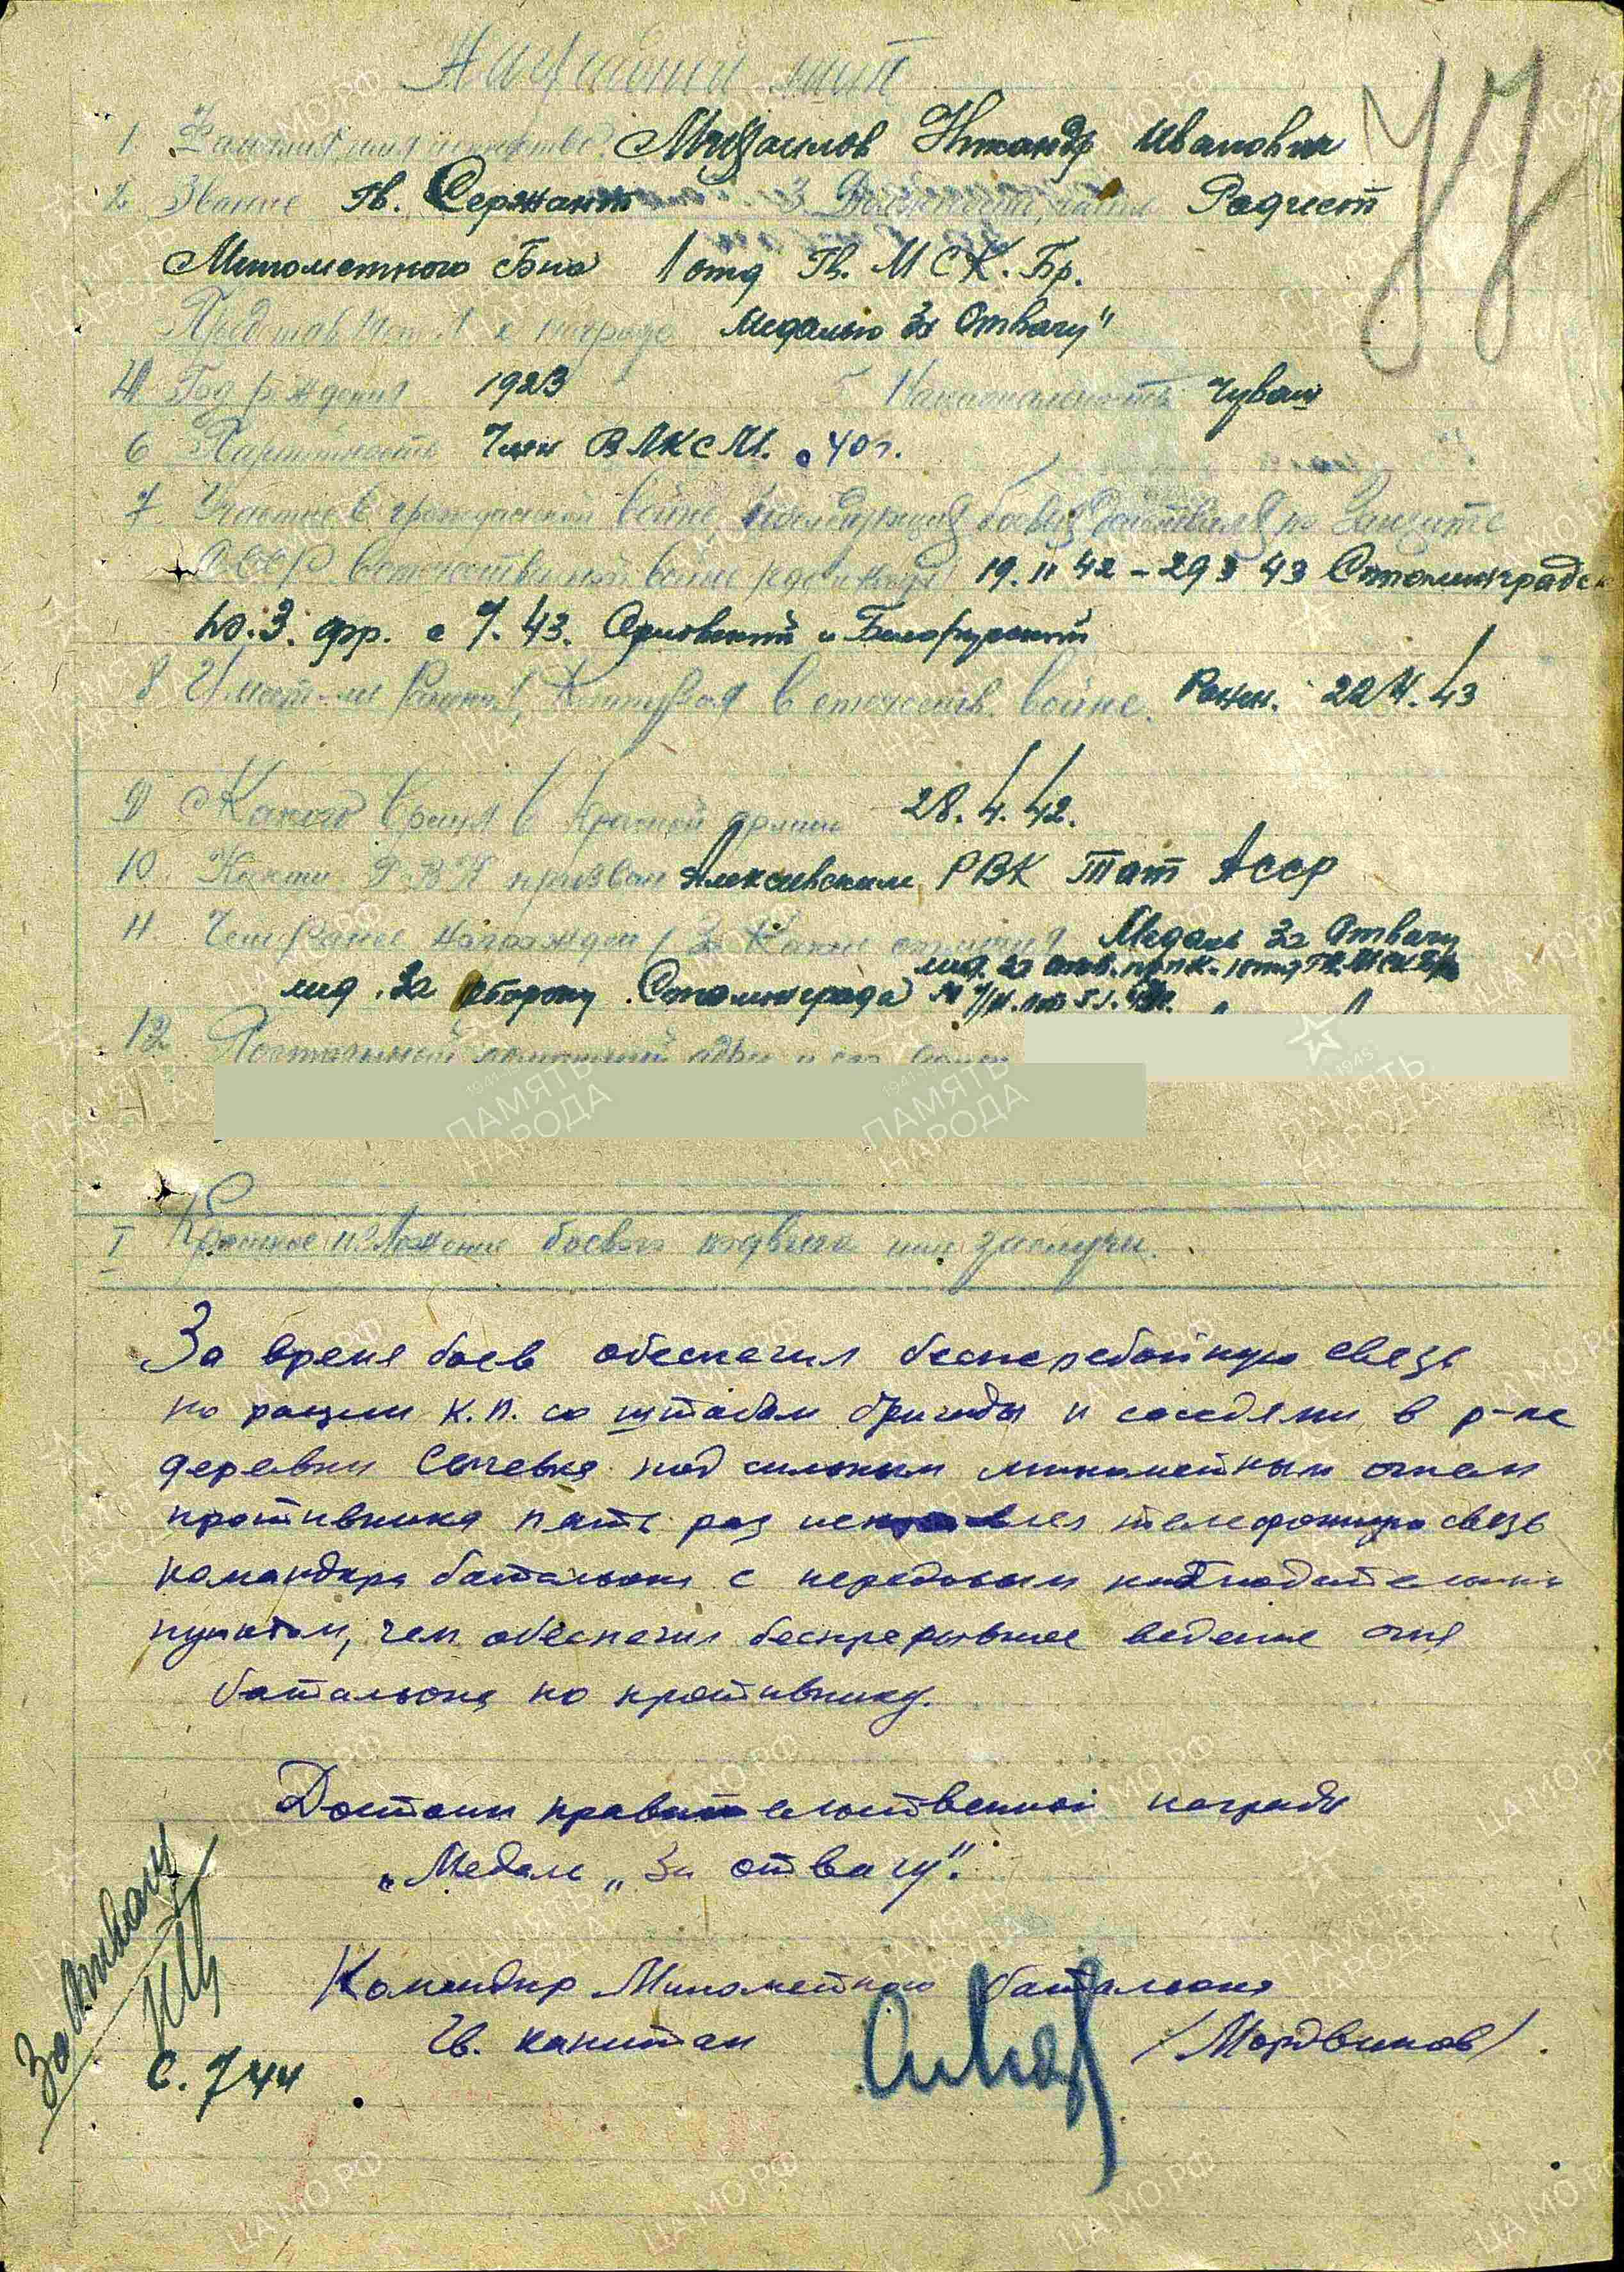 Наградной лист
77
1. Фамилия имя и отчество Михайлов Никандр Иванович
2. Звание Гв. Сержант 3. Должность, часть Радист
Минометного Б-на 1 отд Гв. М С К. Бр.
Представляется к награде Медалью За Отвагу"
4 Год рождения 1923 5 Национальность Чуваш
6 Партийность Член ВЛКСМ. с 40 г.
7. Участие в гражданской войне, последующих боевых действиях по защите
СССР и отечественной войне (где и когда) 19.11 42 - 29 3 43 Сталинградск
Ю.З. фр. с 7. 43. Орловский и Белорусский
8 Имеет ли ранения, контузия в отечеств. войне. Ранен. 22 4. 43
9 С какого время в Красной армии 28. 4. 42.
10. Каким Р В К призван Алексеевским РВК Тат АССР
11. Чем ранее награжден, за какие отличия Медаль За Отвагу
мед. За Отв. 1 отд Гв. МСКБр
мед. За оборону Сталинграда
12 Постоянный домашний адрес и его семьи
I Краткое изложение боевого подвига или заслуги.
За время боев обеспечил бесперебойную связь
по рации К.П. со штабом бригады и соседями, в р-не
деревни Сычевка под сильным минометным огнем
противника пять раз исправлял телефонную связь
командира батальона с передовым наблюдательным
пунктом, чем обеспечил беспрерывное ведение огня
батальона по противнику.
Достоин правительственной награды
„Медаль „За отвагу".
Командир Минометного батальона
Гв. капитан /Мордвинов/.
За Отвагу
6. 7 44
ПАМЯТЬ НАРОДА
ЦА МО.РФ